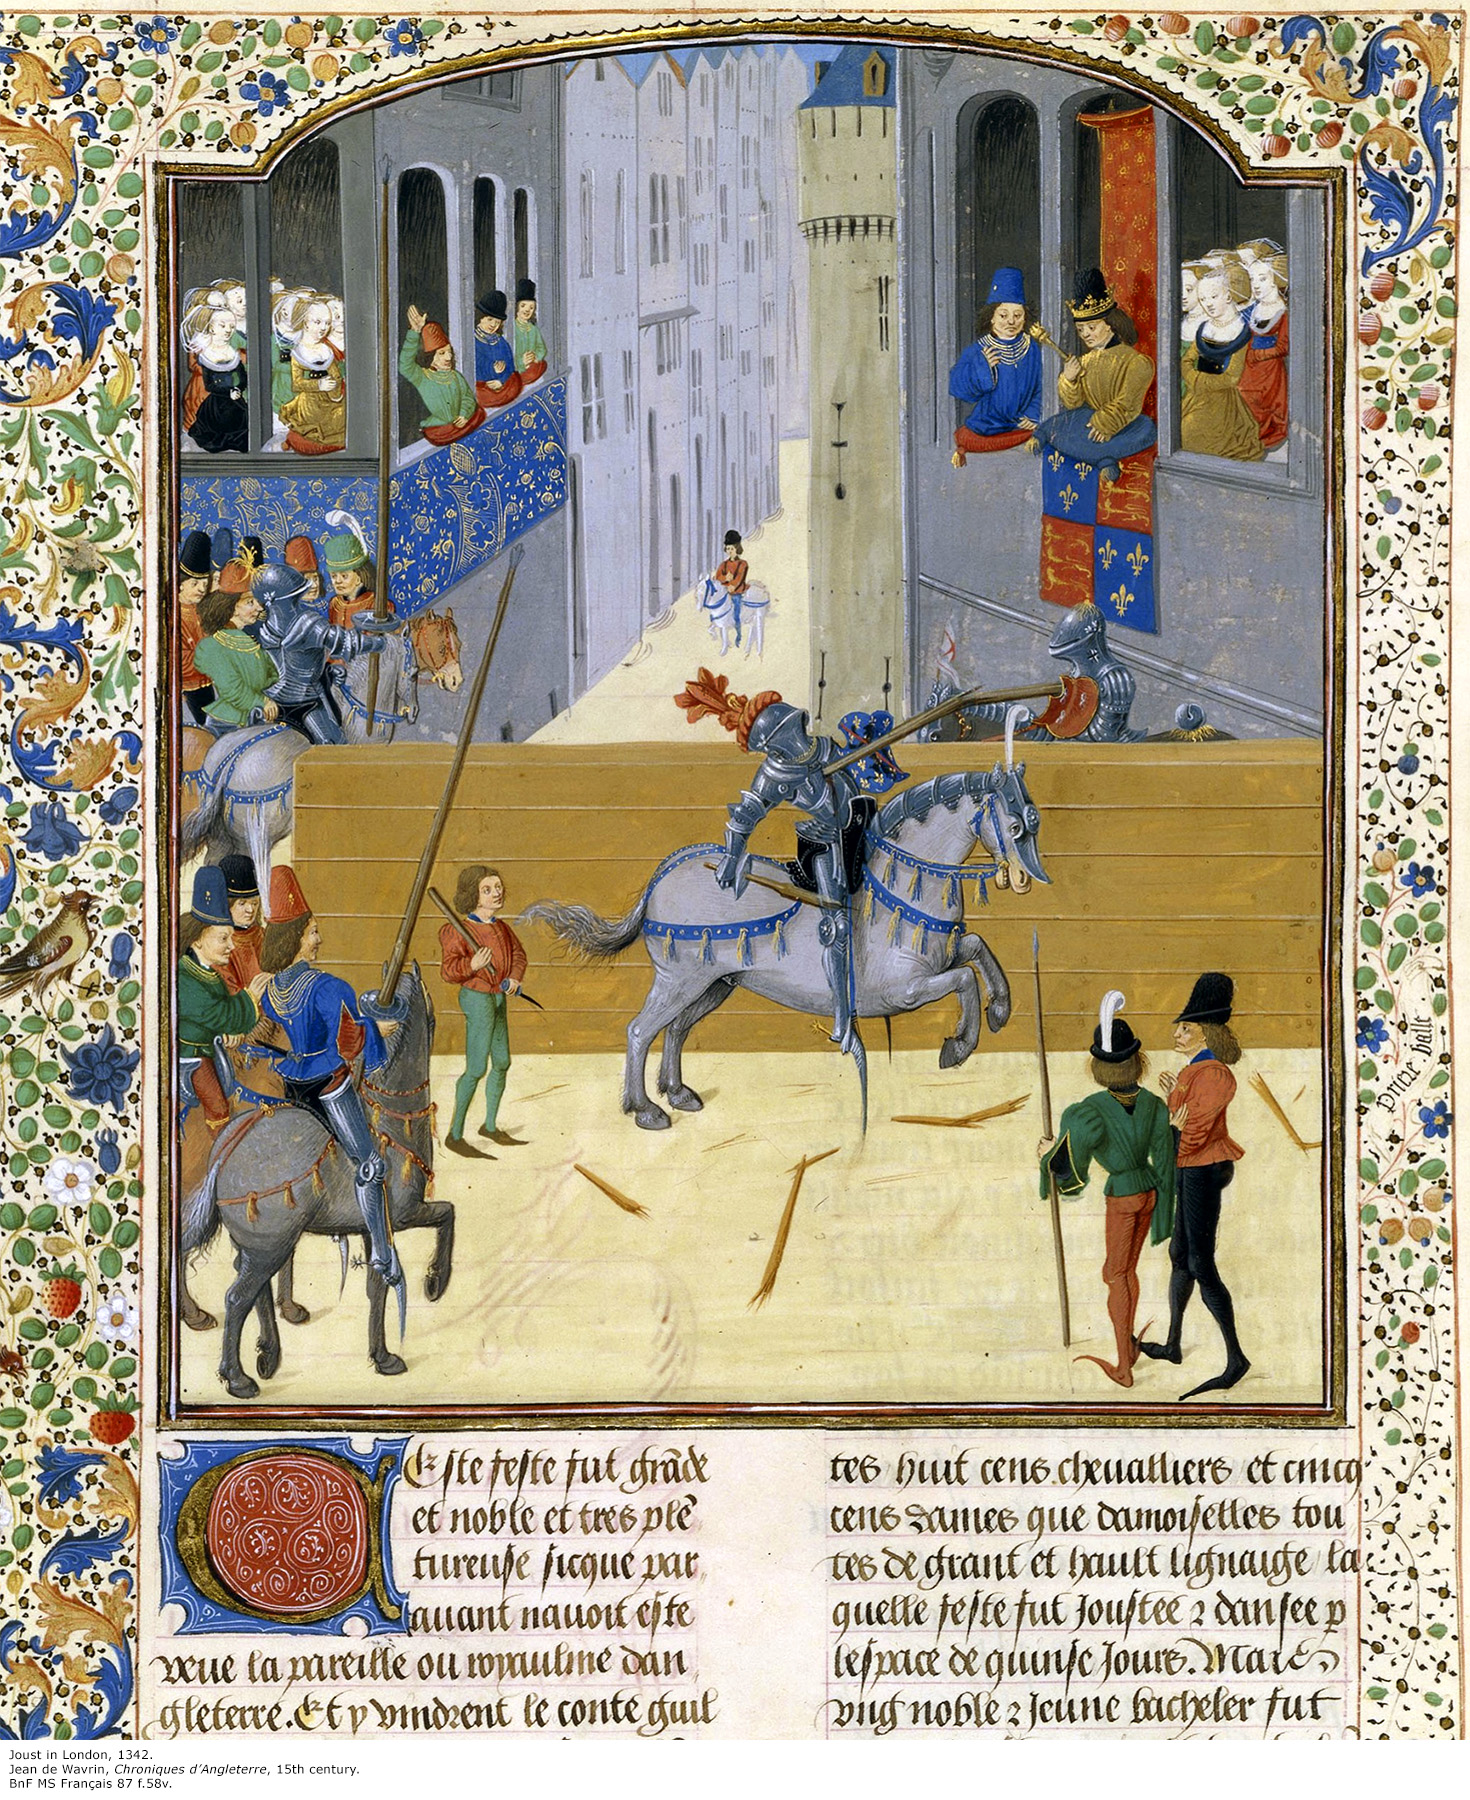 prinse balle
Ceste feste fut grāde
et noble et tres plē
tureuse sicque par
auant nauoit este
veue la pareille ou royaulme dan
gleterre. Et y vindrent le conte guil
tes huit cens chevalliers et cincq
cens dames que damoiselles tou
tes de grant et hault lignaige la
quelle feste fut Joustee ⁊ dansee p
lespace de quinse Jours. Mais
vng noble ⁊ Jeune bacheler fut
Joust in London, 1342.
Jean de Wavrin, Chroniques d’Angleterre, 15th century.
BnF MS Français 87 f.58v.